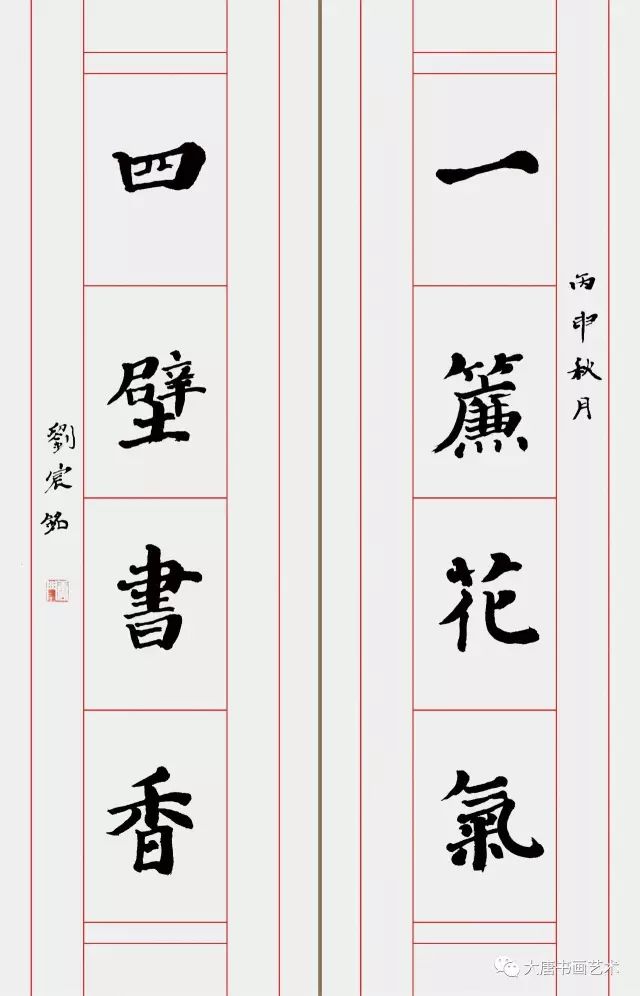 丙申秋月
一簾花氣
四壁書香
劉宸銘
大唐书画艺术